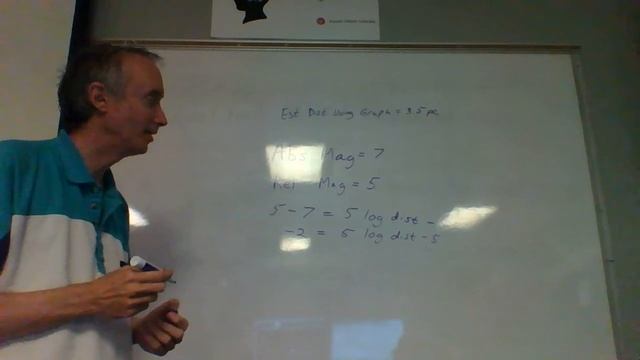 Est Dist Using Graph = 3.5 pc
Abs Mag = 7
Rel Mag = 5
5 - 7 = 5 log dist -
-2 = 5 log dist - 5